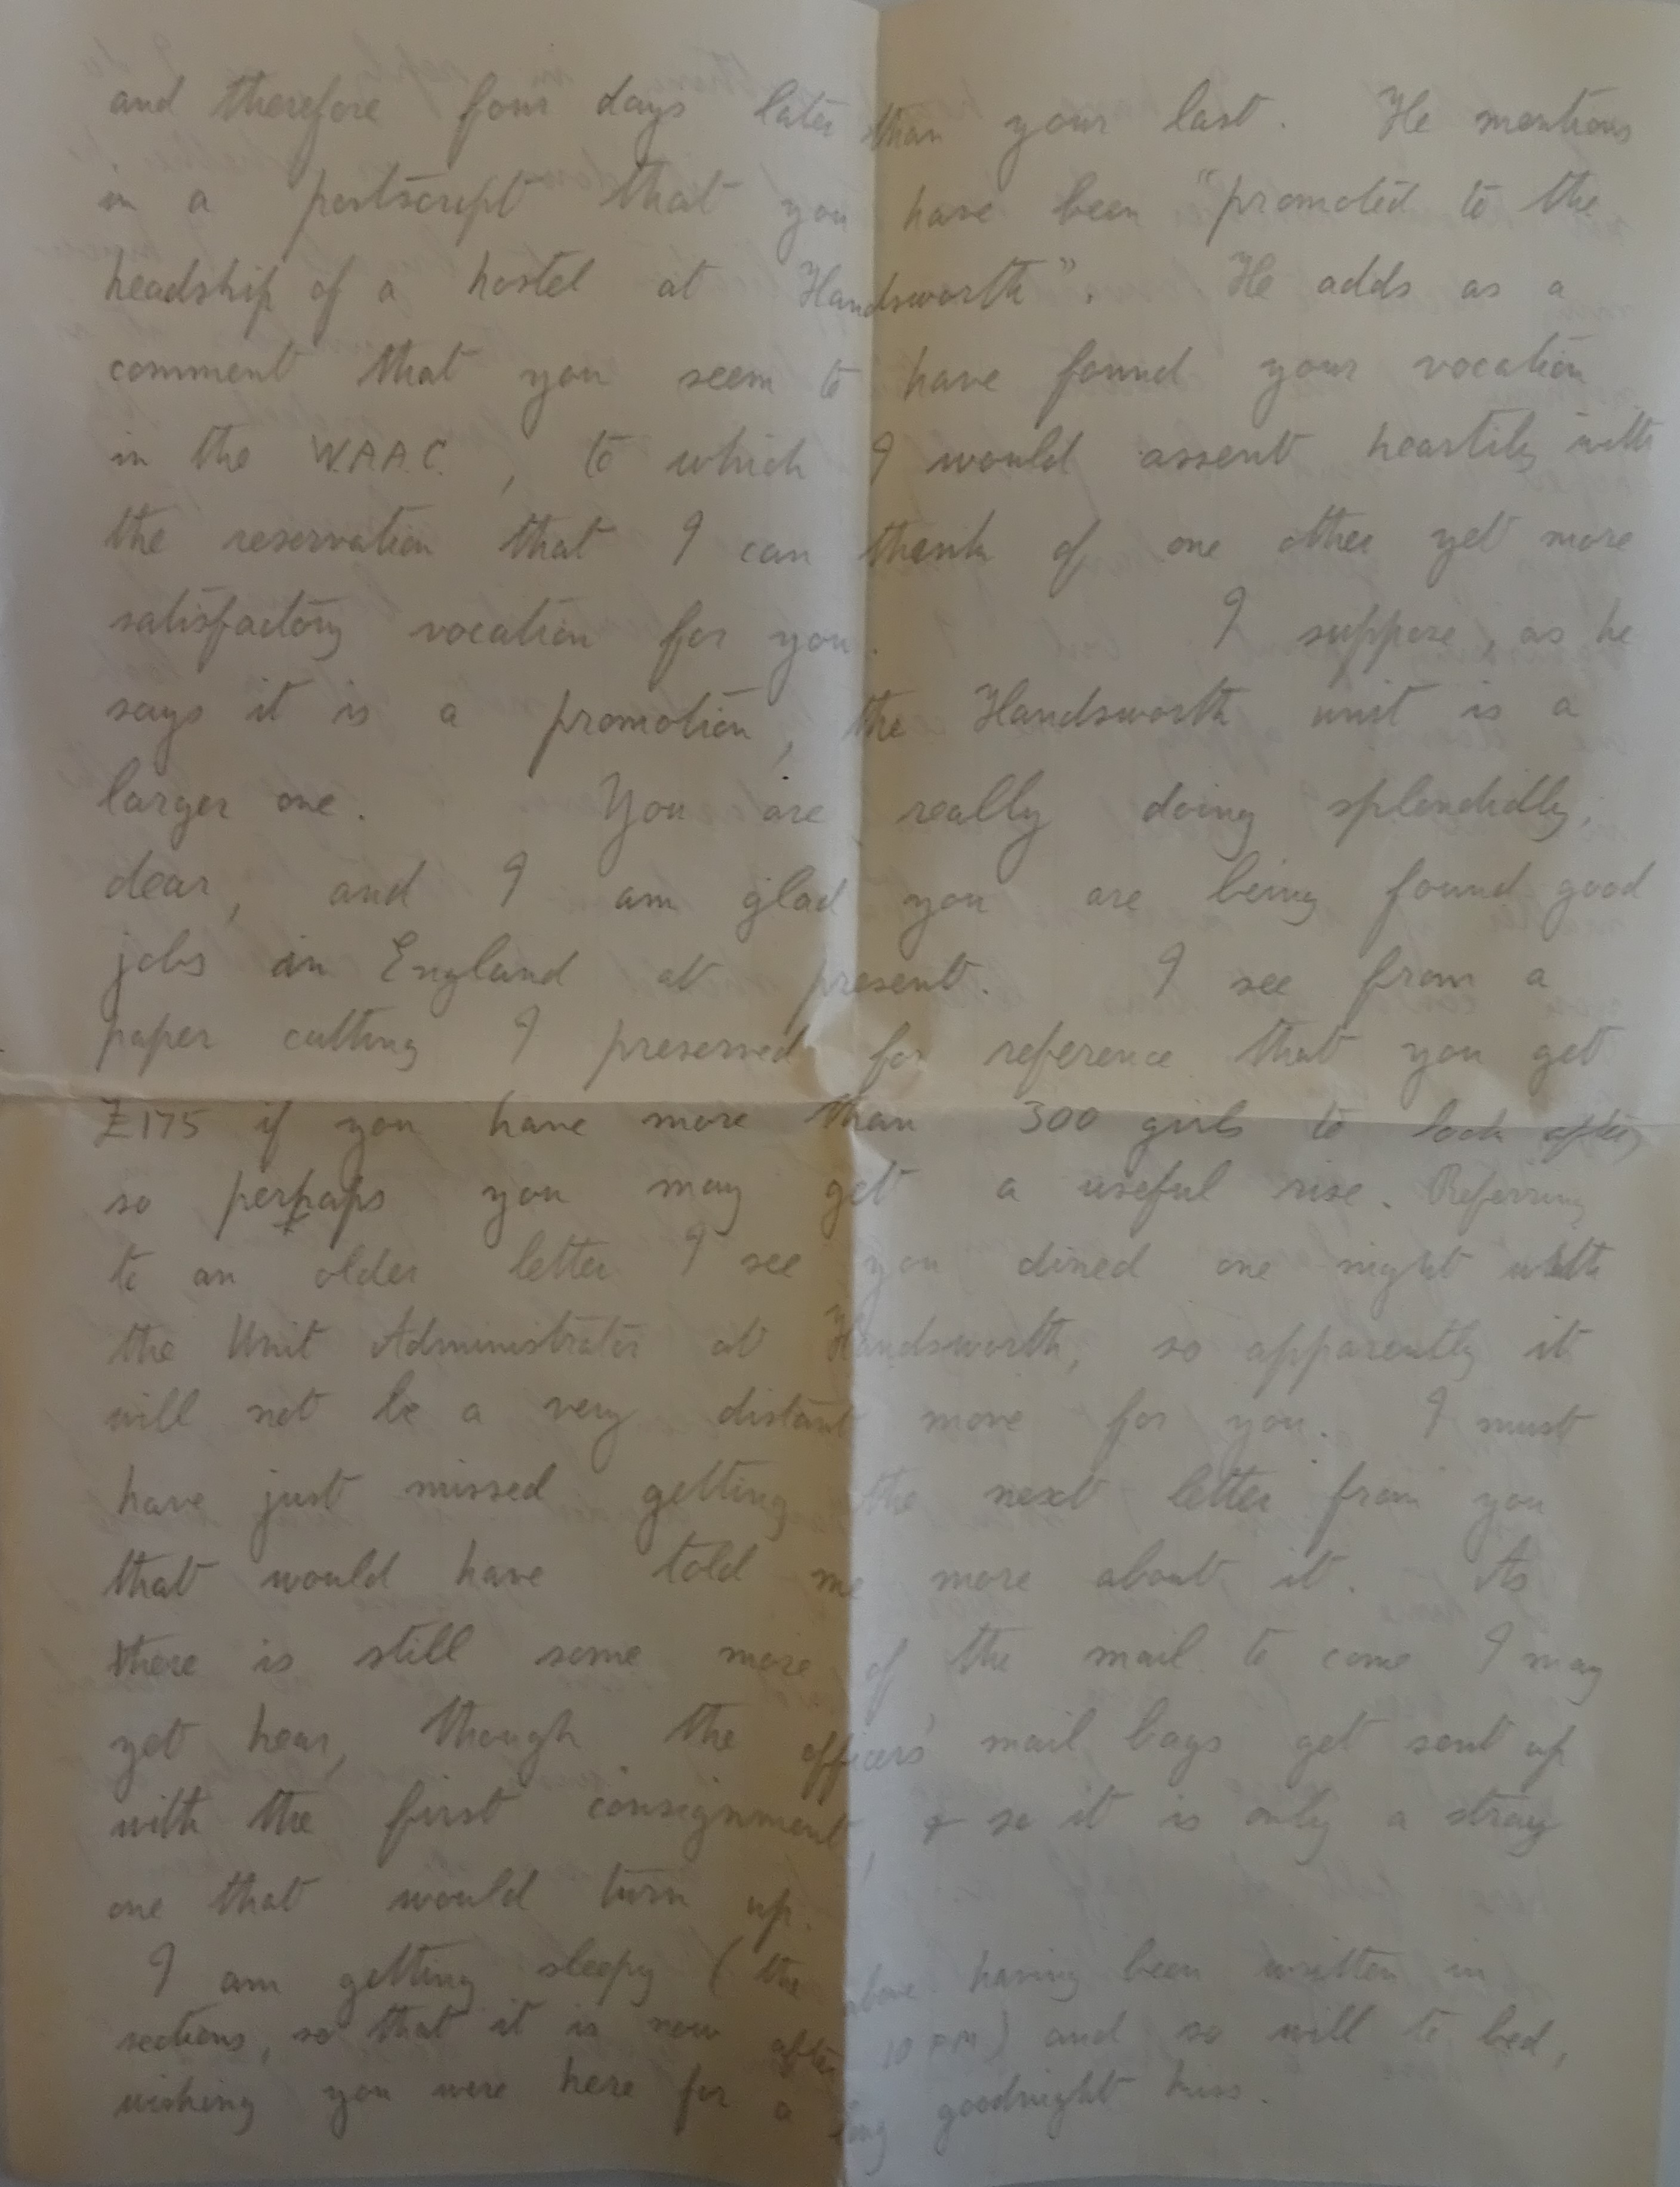 and therefore four days later than your last. He mentions
in a postscript that you have been "promoted to the
headship of a hostel at Handsworth". He adds as a
comment that you seem to have found your vocation
in the W.A.A.C., to which I would assent heartily with
the reservation that I can think of one other yet more
satisfactory vocation for you. I suppose, as he
says it is a promotion, the Handsworth unit is a
larger one. You are really doing splendidly,
dear, and I am glad you are being found good
jobs in England at present. I see from a
paper cutting I preserved for reference that you get
£175 if you have more than 300 girls to look after,
so perhaps you may get a useful rise. Referring
to an older letter I see you dined one night with
the Unit Administrator at Handsworth, so apparently it
will not be a very distant move for you. I must
have just missed getting the next letter from you
that would have told me more about it. As
there is still some more of the mail to come I may
yet hear, though the officers' mail bags get sent up
with the first consignment, & so it is only a stray
one that would turn up.
I am getting sleepy (the above having been written in
sections, so that it is now after 10 PM) and so will to bed,
wishing you were here for a long goodnight kiss.